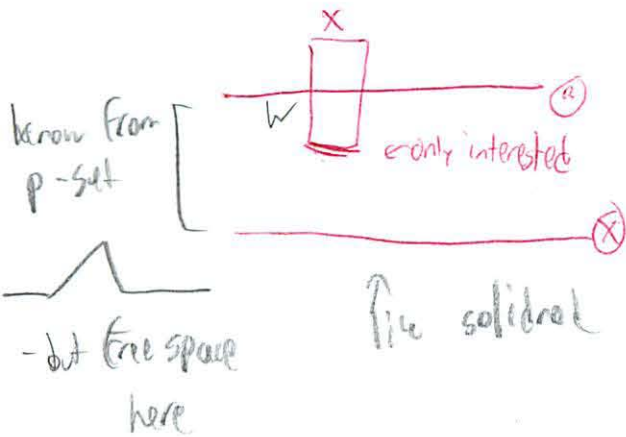 X
know from
p-set
W
←only interested
X
-but free space
here
like solidnod